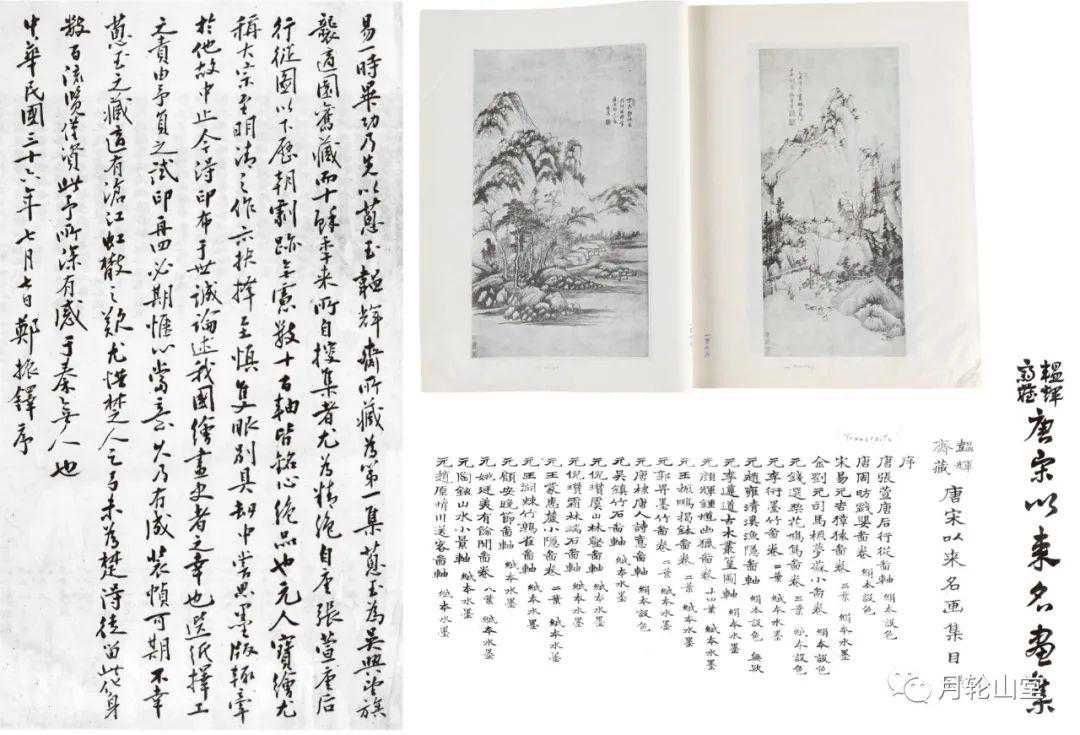 韞輝
齋藏
唐宋以来名畫集
韞輝
齋藏
唐宋以来名画集目
序
唐張萱唐后行從啚軸 絹本設色
唐周昉戲嬰啚卷 絹本設色
宋易元吉獐猿啚卷 二葉 絹本水墨
金劉元司馬槱夢蘇小啚卷 絹本設色
元錢選梨花鳲鳩啚卷 二葉 紙本設色
元李衎墨竹啚卷 二葉 紙本水墨
元趙雍清溪漁隱啚軸 絹本設色
元李邃道古木叢篁圖軸 絹本水墨
元顏輝鍾馗出獵啚卷 十四葉 紙本水墨
元王振鵬揭鉢啚卷 二葉 紙本水墨
元郭畀墨竹啚卷 二葉 紙本水墨
元唐棣唐人詩意啚軸 絹本設色
元吳鎮竹石啚軸 紙本水墨
元倪瓚虞山林壑啚軸 紙本水墨
元倪瓚霜林湍石啚軸 紙本水墨
元王蒙惠麓小隱啚卷 二葉 紙本水墨
元王淵棘竹鷯雀啚軸 紙本水墨
元顧安晚節啚軸 紙本水墨
元姚廷美有餘閒啚卷 八葉 紙本水墨
元陶鉉山水小景軸 紙本水墨
元趙原晴川送客啚軸 紙本水墨
易一時畢功乃先以蔥玉韞輝齋所藏為第一集蔥玉為吳興望族
襲適園舊藏而十餘年来所自搜集者尤為精絕自唐張萱唐后
行從圖以下歷朝劇跡無慮數十百軸皆銘心絕品也元人寶繪尤
稱大宗至明清之作亦抉擇至慎隻眼別具劫中嘗思墨版輒牽
於他故中止今得印布于世誠論述我國繪畫史者之幸也選紙擇工
之責由予負之試印再四必期愜心當意久乃有成裝幀可期不幸
蔥玉之藏適有滄江虹散之歎尤惜楚人之弓未為楚得徒留此身
數百流覽僅資此予所深有感于秦無人也
中華民國三十六年七月七日鄭振鐸序
月轮山堂